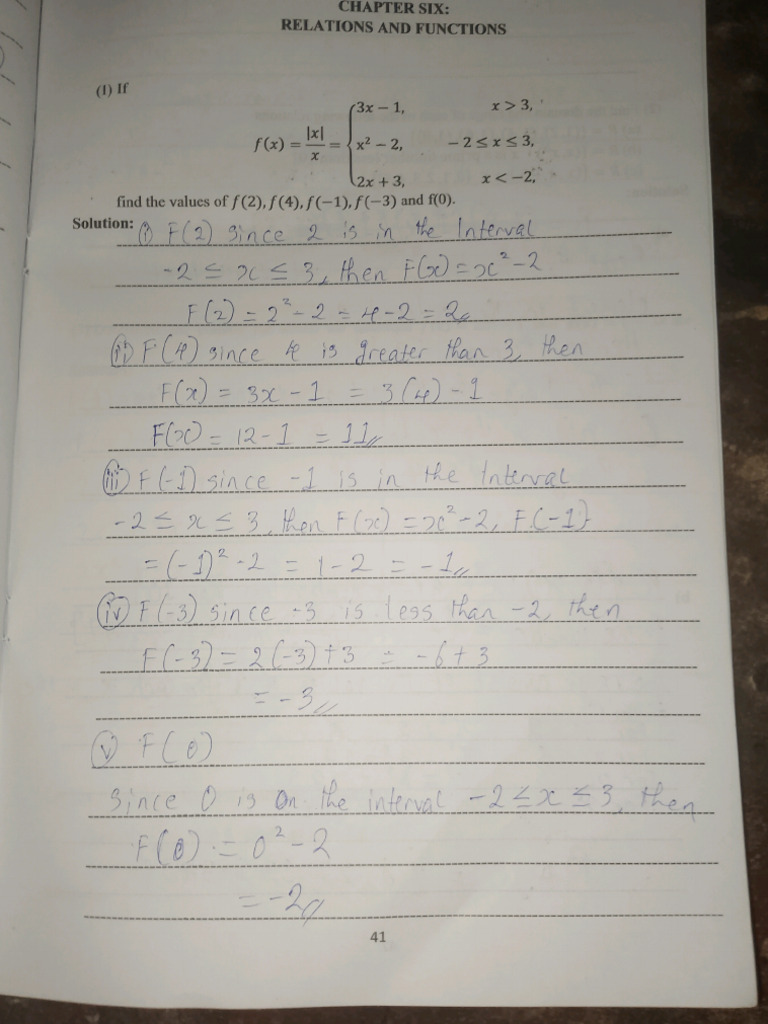 CHAPTER SIX:
RELATIONS AND FUNCTIONS
(1) If
3x − 1, x > 3,
f(x) = |x|/x = { x² − 2, − 2 ≤ x ≤ 3,
2x + 3, x < −2,
find the values of f(2), f(4), f(−1), f(−3) and f(0).
Solution: (i) F(2) since 2 is in the Interval
-2 ≤ x ≤ 3, then F(x) = x² - 2
F(2) = 2² - 2 = 4 - 2 = 2
(ii) F(4) since 4 is greater than 3, then
F(x) = 3x - 1 = 3(4) - 1
F(x) = 12 - 1 = 11
(iii) F(-1) since -1 is in the Interval
-2 ≤ x ≤ 3, then F(x) = x² - 2, F(-1)
= (-1)² - 2 = 1 - 2 = -1
(iv) F(-3) since -3 is less than -2, then
F(-3) = 2(-3) + 3 = -6 + 3
= -3
(v) F(0)
Since 0 is on the interval -2 ≤ x ≤ 3, then
F(0) = 0² - 2
= -2
41